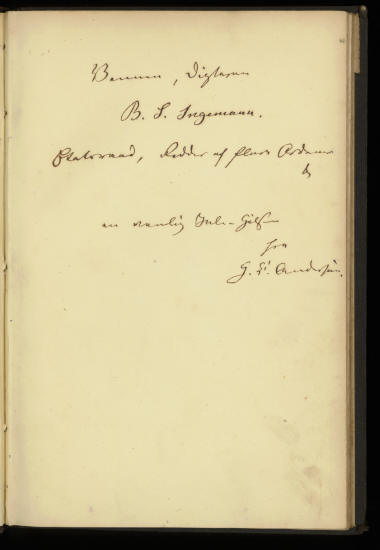 Vennen, Digteren
B. S. Ingemann.
Etatsraad, Ridder af flere Ordener
en venlig Jule-Hilsen
fra
H. C. Andersen.